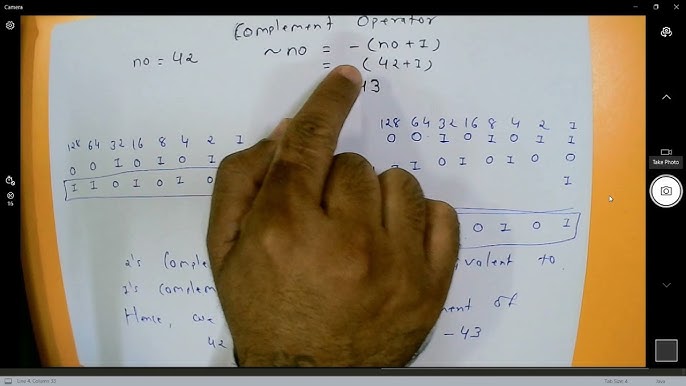 Camera
Complement Operator
no = 42
~no = -(no+1)
= (42+1)
43
128 64 32 16 8 4 2 1
0 0 1 0 1 0 1
1 1 0 1 0 1 0
128 64 32 16 8 4 2 1
0 0 1 0 1 0 1 1
1 0 1 0 1 0 0
1
0 1 0 1
2's Comple
valent to
1's compleme
ment of
Hence, we
42
-43
Take Photo
15
Line 4, Column 31
Tab Size: 4
Java